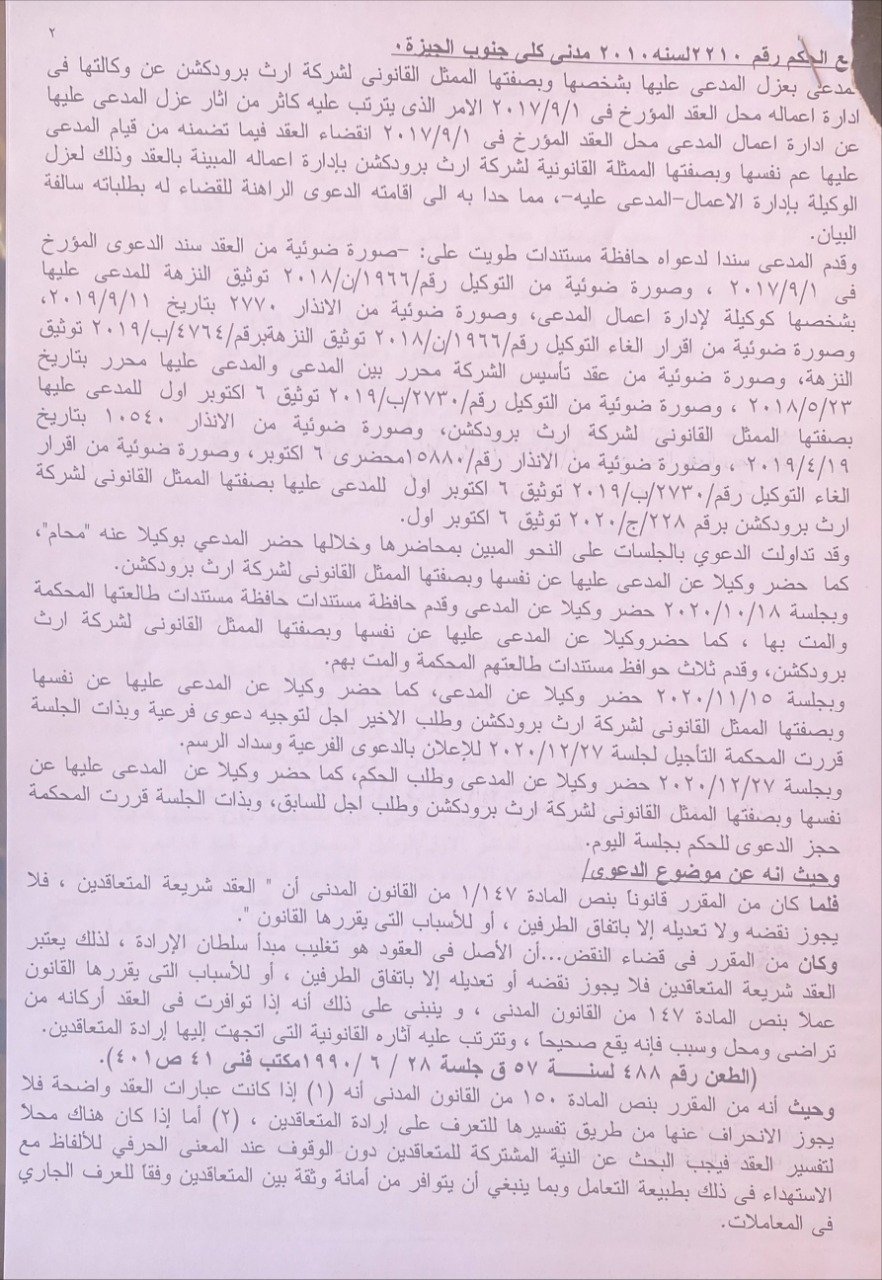 ٢
ع الحكم رقم ٢٢١٠لسنه٢٠١٠ مدنى كلى جنوب الجيزة.
المدعى بعزل المدعى عليها بشخصها وبصفتها الممثل القانونى لشركة ارث برودكشن عن وكالتها فى
ادارة اعماله محل العقد المؤرخ فى ٢٠١٧/٩/١ الامر الذى يترتب عليه كاثر من اثار عزل المدعى عليها
عن ادارة اعمال المدعى محل العقد المؤرخ فى ٢٠١٧/٩/١ انقضاء العقد فيما تضمنه من قيام المدعى
عليها عم نفسها وبصفتها الممثلة القانونية لشركة ارث برودكشن بإدارة اعماله المبينة بالعقد وذلك لعزل
الوكيلة بإدارة الاعمال-المدعى عليه-، مما حدا به الى اقامته الدعوى الراهنة للقضاء له بطلباته سالفة
البيان.
وقدم المدعى سندا لدعواه حافظة مستندات طويت على: -صورة ضوئية من العقد سند الدعوى المؤرخ
فى ٢٠١٧/٩/١ ، وصورة ضوئية من التوكيل رقم/١٩٦٦/ن/٢٠١٨ توثيق النزهة للمدعى عليها
بشخصها كوكيلة لإدارة اعمال المدعى، وصورة ضوئية من الانذار ٢٧٧٠ بتاريخ ٢٠١٩/٩/١١،
وصورة ضوئية من اقرار الغاء التوكيل رقم/١٩٦٦/ن/٢٠١٨ توثيق النزهةبرقم/٤٧٦٤/ب/٢٠١٩ توثيق
النزهة، وصورة ضوئية من عقد تأسيس الشركة محرر بين المدعى والمدعى عليها محرر بتاريخ
٢٠١٨/٥/٢٣ ، وصورة ضوئية من التوكيل رقم/٢٧٣٠/ب/٢٠١٩ توثيق ٦ اكتوبر اول للمدعى عليها
بصفتها الممثل القانونى لشركة ارث برودكشن، وصورة ضوئية من الانذار ١٠٥٤٠ بتاريخ
٢٠١٩/٤/١٩ ، وصورة ضوئية من الانذار رقم/١٥٨٨٠محضرى ٦ اكتوبر، وصورة ضوئية من اقرار
الغاء التوكيل رقم/٢٧٣٠/ب/٢٠١٩ توثيق ٦ اكتوبر اول للمدعى عليها بصفتها الممثل القانونى لشركة
ارث برودكشن برقم ٢٢٨/ج/٢٠٢٠ توثيق ٦ اكتوبر اول.
وقد تداولت الدعوي بالجلسات على النحو المبين بمحاضرها وخلالها حضر المدعي بوكيلا عنه "محام"،
كما حضر وكيلا عن المدعى عليها عن نفسها وبصفتها الممثل القانونى لشركة ارث برودكشن.
وبجلسة ٢٠٢٠/١٠/١٨ حضر وكيلا عن المدعى وقدم حافظة مستندات حافظة مستندات طالعتها المحكمة
والمت بها ، كما حضروكيلا عن المدعى عليها عن نفسها وبصفتها الممثل القانونى لشركة ارث
برودكشن، وقدم ثلاث حوافظ مستندات طالعتهم المحكمة والمت بهم.
وبجلسة ٢٠٢٠/١١/١٥ حضر وكيلا عن المدعى، كما حضر وكيلا عن المدعى عليها عن نفسها
وبصفتها الممثل القانونى لشركة ارث برودكشن وطلب الاخير اجل لتوجيه دعوى فرعية وبذات الجلسة
قررت المحكمة التأجيل لجلسة ٢٠٢٠/١٢/٢٧ للإعلان بالدعوى الفرعية وسداد الرسم.
وبجلسة ٢٠٢٠/١٢/٢٧ حضر وكيلا عن المدعى وطلب الحكم، كما حضر وكيلا عن المدعى عليها عن
نفسها وبصفتها الممثل القانونى لشركة ارث برودكشن وطلب اجل للسابق، وبذات الجلسة قررت المحكمة
حجز الدعوى للحكم بجلسة اليوم.
وحيث انه عن موضوع الدعوى/
فلما كان من المقرر قانوناً بنص المادة ١/١٤٧ من القانون المدنى أن " العقد شريعة المتعاقدين ، فلا
يجوز نقضه ولا تعديله إلا باتفاق الطرفين ، أو للأسباب التى يقررها القانون ".
وكان من المقرر فى قضاء النقض...أن الأصل فى العقود هو تغليب مبدأ سلطان الإرادة ، لذلك يعتبر
العقد شريعة المتعاقدين فلا يجوز نقضه أو تعديله إلا باتفاق الطرفين ، أو للأسباب التى يقررها القانون
عملاً بنص المادة ١٤٧ من القانون المدنى ، و ينبنى على ذلك أنه إذا توافرت فى العقد أركانه من
تراضى ومحل وسبب فإنه يقع صحيحاً ، وتترتب عليه آثاره القانونية التى اتجهت إليها إرادة المتعاقدين.
(الطعن رقم ٤٨٨ لسنــــة ٥٧ ق جلسة ٢٨ / ٦ /١٩٩٠مكتب فنى ٤١ ص٤٠١).
وحيث أنه من المقرر بنص المادة ١٥٠ من القانون المدنى أنه (١) إذا كانت عبارات العقد واضحة فلا
يجوز الانحراف عنها من طريق تفسيرها للتعرف على إرادة المتعاقدين ، (٢) أما إذا كان هناك محلاً
لتفسير العقد فيجب البحث عن النية المشتركة للمتعاقدين دون الوقوف عند المعنى الحرفي للألفاظ مع
الاستهداء فى ذلك بطبيعة التعامل وبما ينبغي أن يتوافر من أمانة وثقة بين المتعاقدين وفقاً للعرف الجاري
فى المعاملات.